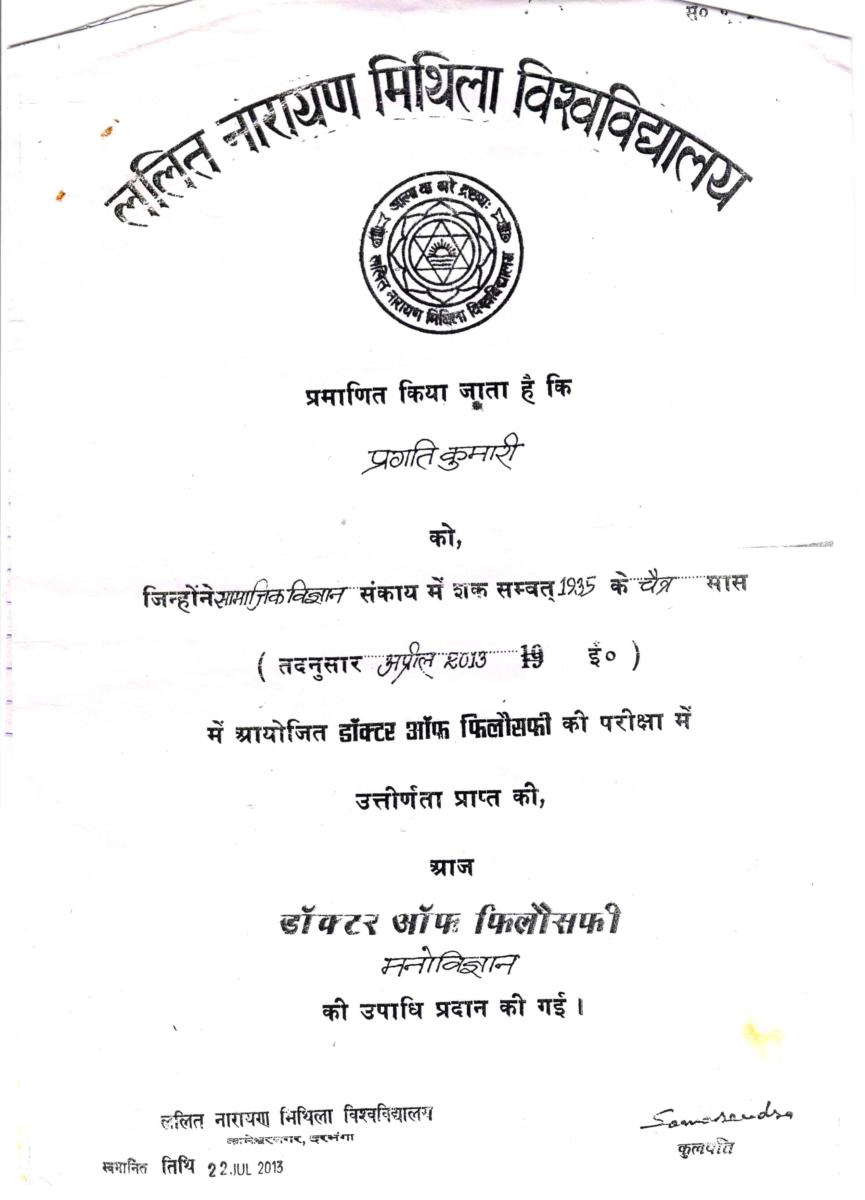 सु०
ललित नारायण मिथिला विश्वविद्यालय
ललित नारायण मिथिला विश्वविद्यालय
प्रमाणित किया जाता है कि
प्रगति कुमारी
को,
जिन्होंने सामाजिक विज्ञान संकाय में शक सम्वत् 1935 के चैत्र मास
( तदनुसार अप्रील 2013 19 ई० )
में आयोजित डॉक्टर ऑफ फिलौसफी की परीक्षा में
उत्तीर्णता प्राप्त की,
आज
डॉक्टर ऑफ फिलौसफी
मनोविज्ञान
की उपाधि प्रदान की गई।
ललित नारायण मिथिला विश्वविद्यालय
कामेश्वरनगर, दरभंगा
तिथि 22 JUL 2013
कुलपति